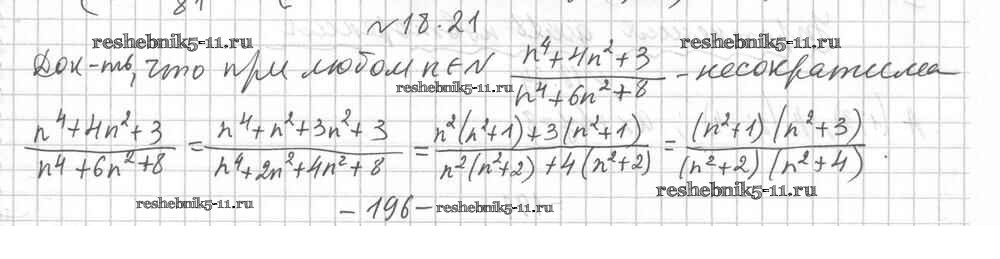 №18.21
reshebnik5-11.ru reshebnik5-11.ru
Док-ть, что при любом n∈N (n⁴+4n²+3)/(n⁴+6n²+8) - несократима
reshebnik5-11.ru
(n⁴+4n²+3)/(n⁴+6n²+8) = (n⁴+n²+3n²+3)/(n⁴+2n²+4n²+8) = (n²(n²+1)+3(n²+1))/(n²(n²+2)+4(n²+2)) = ((n²+1)(n²+3))/((n²+2)(n²+4)).
reshebnik5-11.ru
reshebnik5-11.ru -196- reshebnik5-11.ru